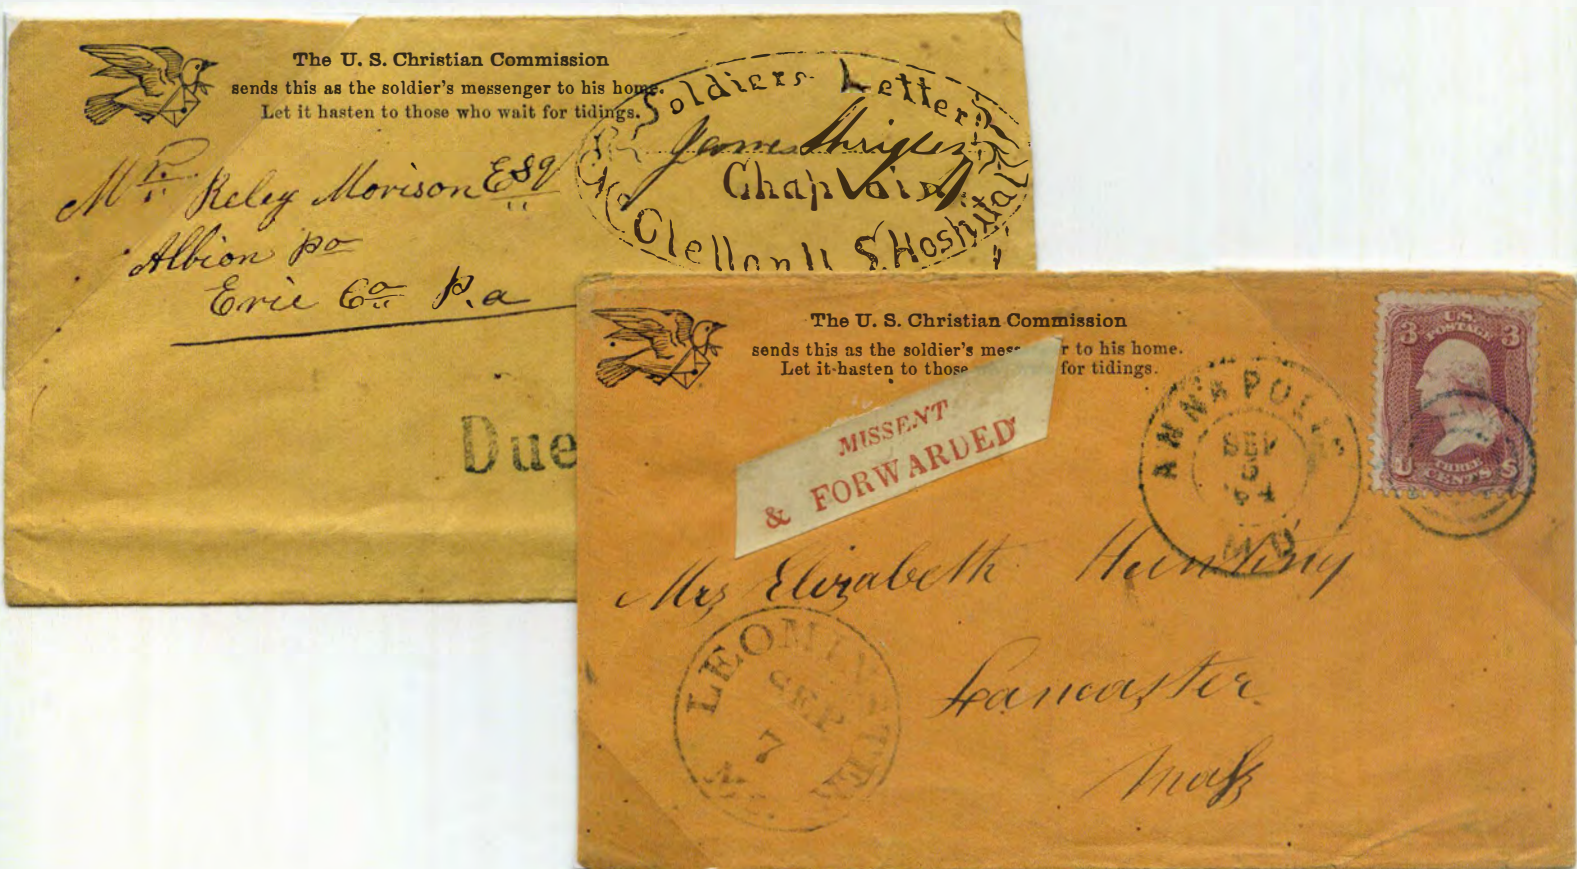 The U. S. Christian Commission
sends this as the soldier's messenger to his home.
Let it hasten to those who wait for tidings.
Soldiers Letter
James
Chaplain
McClellan U.S. Hospital
Mr. Reley Morison Esq
Albion Po
Erie Co P.a
Due
The U. S. Christian Commission
sends this as the soldier's mess r to his home.
Let it hasten to those for tidings.
MISSENT
& FORWARDED
ANNAPOLIS
SEP
5
'64
MD
U.S.
POSTAGE
3 3
U S
THREE
CENTS
Mrs Elizabeth Hunting
Lancaster
Mass
LEOMINSTER
SEP
7